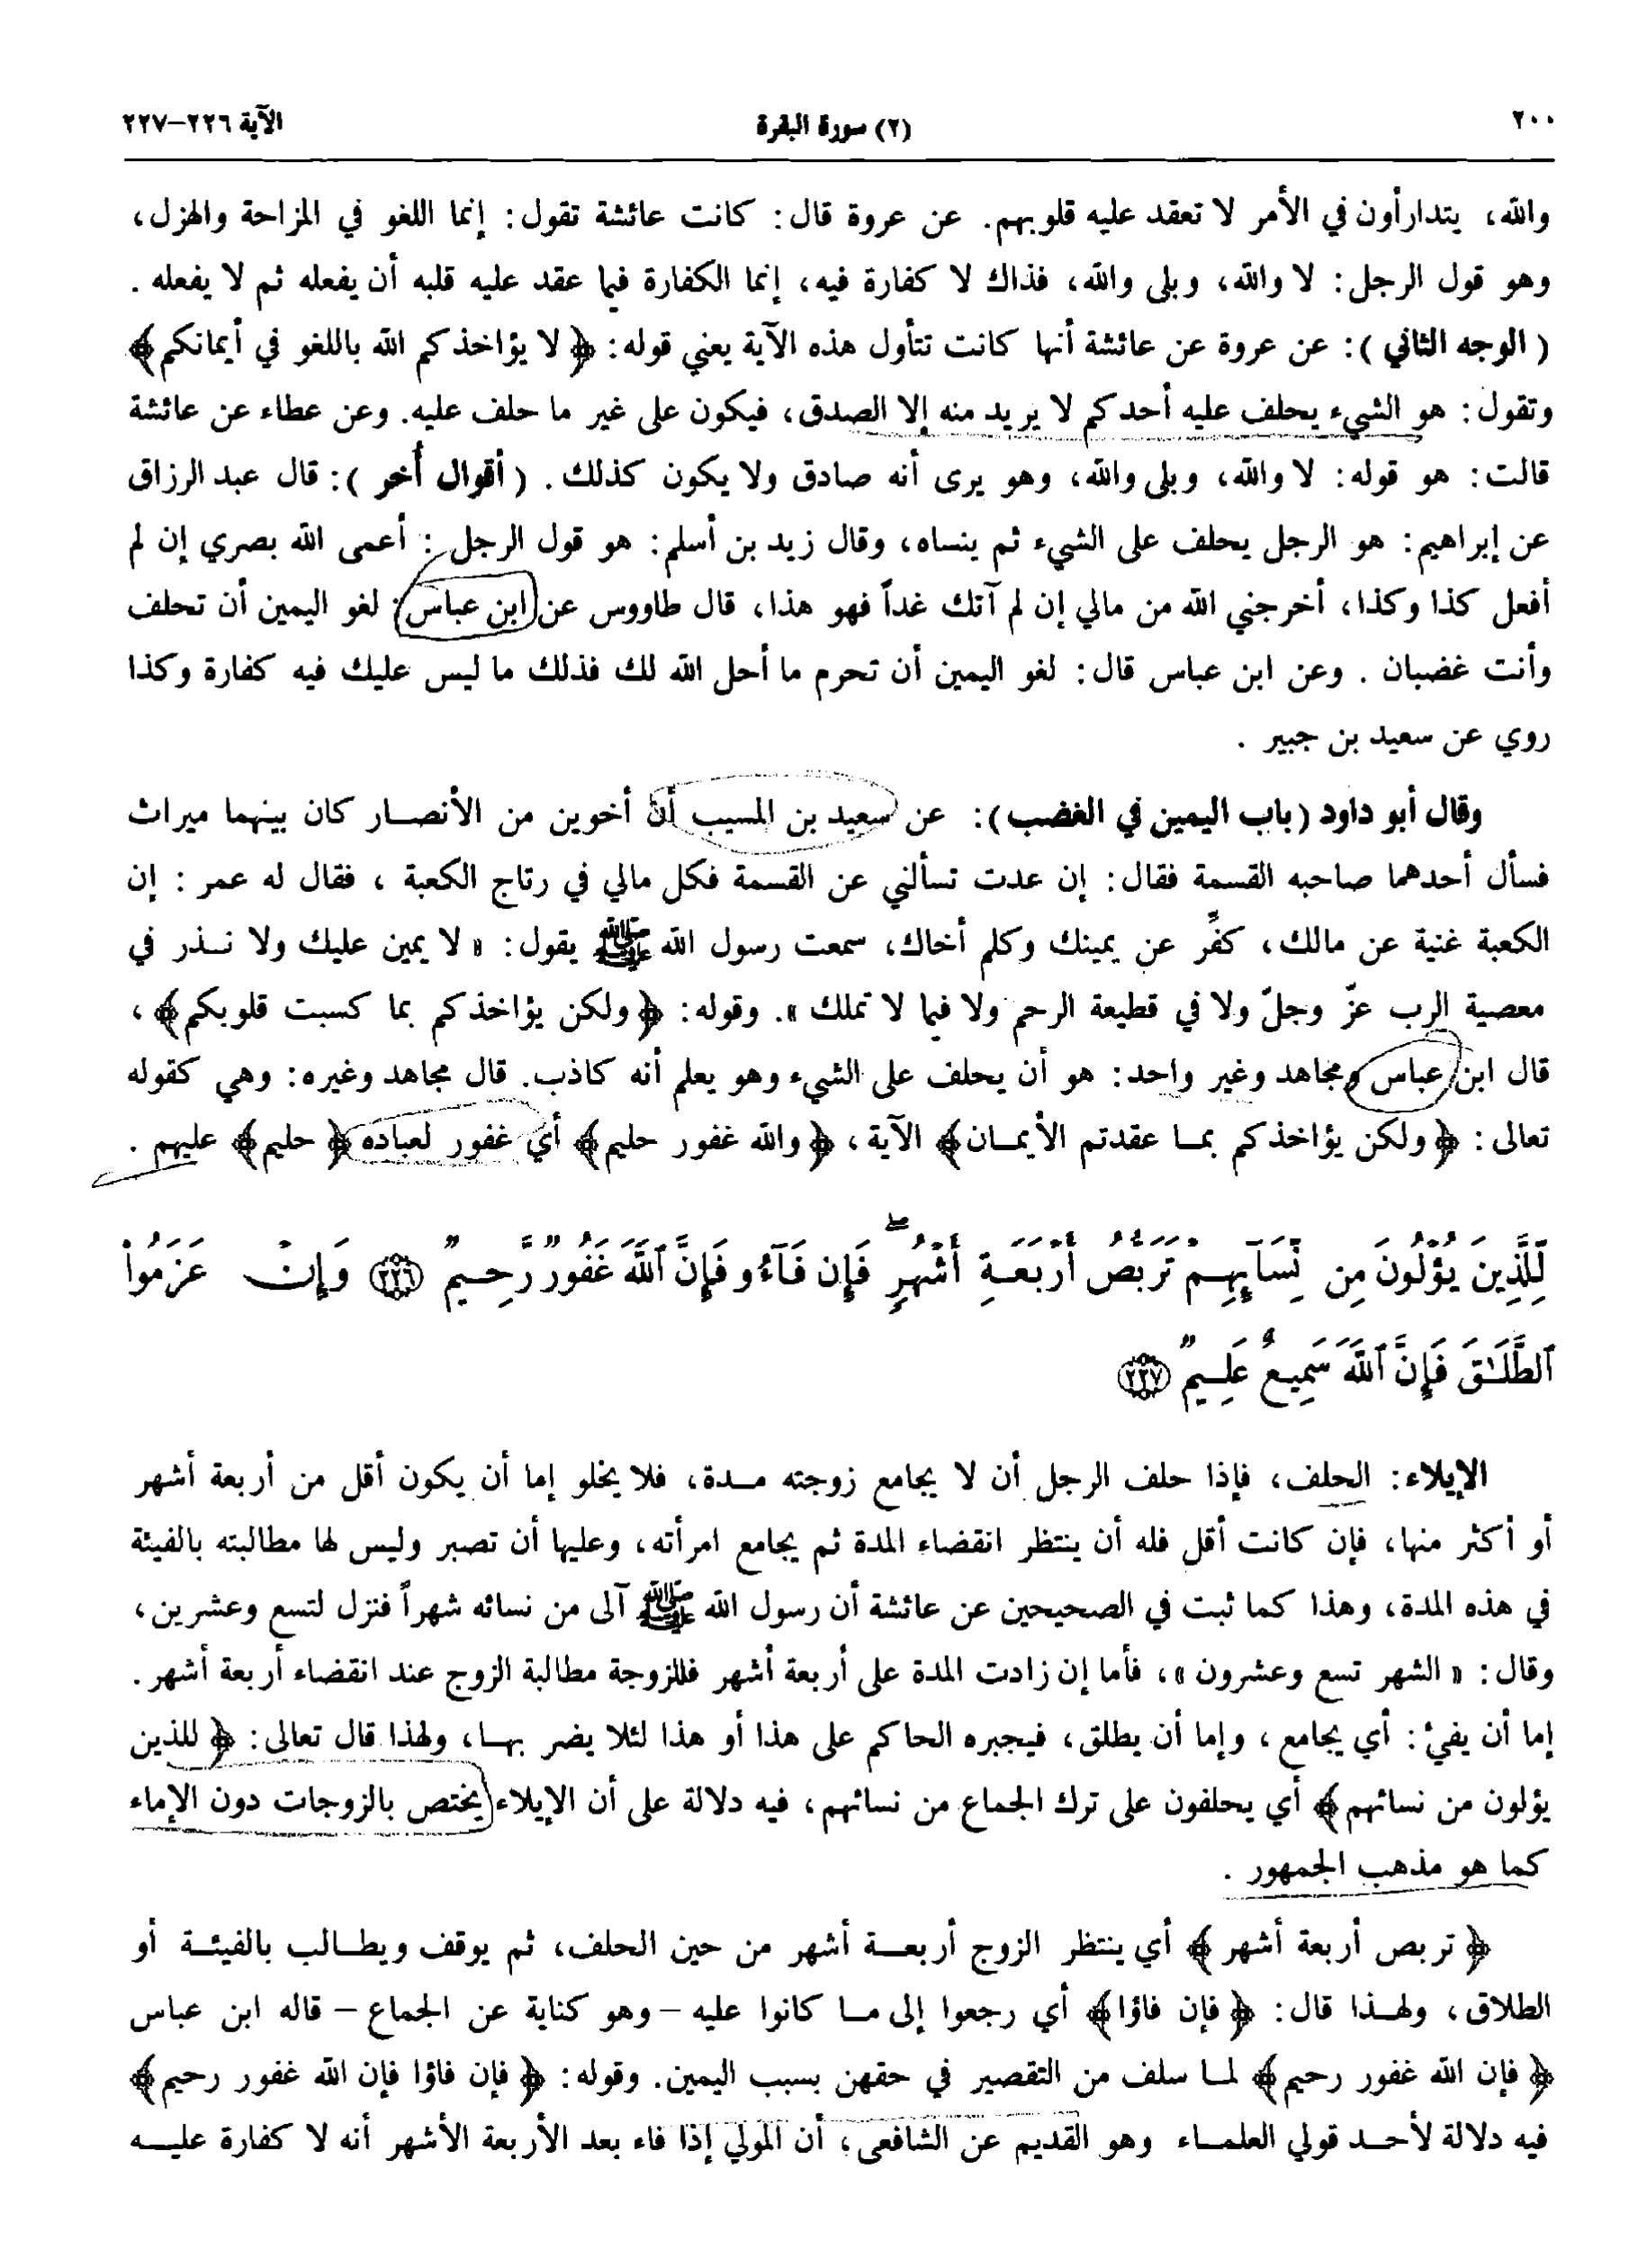 ٢٠٠
(٢) سورة البقرة
الآية ٢٢٦–٢٢٧
والله، يتدارأون في الأمر لا تعقد عليه قلوبهم. عن عروة قال: كانت عائشة تقول: إنما اللغو في المزاحة والهزل،
وهو قول الرجل: لا والله، وبلى والله، فذاك لا كفارة فيه، إنما الكفارة فيما عقد عليه قلبه أن يفعله ثم لا يفعله .
( الوجه الثاني ): عن عروة عن عائشة أنها كانت تتأول هذه الآية يعني قوله: ﴿ لا يؤاخذكم الله باللغو في أيمانكم﴾
وتقول: هو الشيء يحلف عليه أحدكم لا يريد منه إلا الصدق، فيكون على غير ما حلف عليه. وعن عطاء عن عائشة
قالت: هو قوله: لا والله، وبلى والله، وهو يرى أنه صادق ولا يكون كذلك. ( أقوال أُخر ): قال عبد الرزاق
عن إبراهيم: هو الرجل يحلف على الشيء ثم ينساه، وقال زيد بن أسلم: هو قول الرجل : أعمى الله بصري إن لم
أفعل كذا وكذا، أخرجني الله من مالي إن لم آتك غداً فهو هذا، قال طاووس عن ابن عباس: لغو اليمين أن تحلف
وأنت غضبان . وعن ابن عباس قال: لغو اليمين أن تحرم ما أحل الله لك فذلك ما ليس عليك فيه كفارة وكذا
روي عن سعيد بن جبير .
وقال أبو داود (باب اليمين في الغضب): عن سعيد بن المسيب أن أخوين من الأنصار كان بينهما ميراث
فسأل أحدهما صاحبه القسمة فقال: إن عدت تسألني عن القسمة فكل مالي في رتاج الكعبة ، فقال له عمر : إن
الكعبة غنية عن مالك، كفِّر عن يمينك وكلم أخاك، سمعت رسول الله ﷺ يقول: « لا يمين عليك ولا نذر في
معصية الرب عزّ وجلّ ولا في قطيعة الرحم ولا فيما لا تملك ». وقوله: ﴿ولكن يؤاخذكم بما كسبت قلوبكم﴾ ،
قال ابن عباس ومجاهد وغير واحد: هو أن يحلف على الشيء وهو يعلم أنه كاذب. قال مجاهد وغيره: وهي كقوله
تعالى: ﴿ولكن يؤاخذكم بما عقدتم الأيمان﴾ الآية ، ﴿والله غفور حليم﴾ أي غفور لعباده ﴿ حليم﴾ عليهم .
لِّلَّذِينَ يُؤْلُونَ مِن نِّسَآئِهِمْ تَرَبُّصُ أَرْبَعَةِ أَشْهُرٍ ۖ فَإِن فَآءُو فَإِنَّ ٱللَّهَ غَفُورٌ رَّحِيمٌ ﴿٢٢٦﴾ وَإِنْ عَزَمُوا۟
ٱلطَّلَـٰقَ فَإِنَّ ٱللَّهَ سَمِيعٌ عَلِيمٌ ﴿٢٢٧﴾
الإيلاء: الحلف، فإذا حلف الرجل أن لا يجامع زوجته مدة، فلا يخلو إما أن يكون أقل من أربعة أشهر
أو أكثر منها، فإن كانت أقل فله أن ينتظر انقضاء المدة ثم يجامع امرأته، وعليها أن تصبر وليس لها مطالبته بالفيئة
في هذه المدة، وهذا كما ثبت في الصحيحين عن عائشة أن رسول الله ﷺ آلى من نسائه شهراً فنزل لتسع وعشرين،
وقال: « الشهر تسع وعشرون »، فأما إن زادت المدة على أربعة أشهر فللزوجة مطالبة الزوج عند انقضاء أربعة أشهر.
إما أن يفيء: أي يجامع ، وإما أن يطلق، فيجبره الحاكم على هذا أو هذا لئلا يضر بها، ولهذا قال تعالى: ﴿ للذين
يؤلون من نسائهم﴾ أي يحلفون على ترك الجماع من نسائهم، فيه دلالة على أن الإيلاء يختص بالزوجات دون الإماء
كما هو مذهب الجمهور .
﴿ تربص أربعة أشهر ﴾ أي ينتظر الزوج أربعة أشهر من حين الحلف، ثم يوقف ويطالب بالفيئة أو
الطلاق، ولهذا قال: ﴿فإن فاؤا﴾ أي رجعوا إلى ما كانوا عليه – وهو كناية عن الجماع – قاله ابن عباس
﴿ فإن الله غفور رحيم﴾ لما سلف من التقصير في حقهن بسبب اليمين. وقوله: ﴿ فإن فاؤا فإن الله غفور رحيم﴾
فيه دلالة لأحد قولي العلماء وهو القديم عن الشافعي؛ أن المولي إذا فاء بعد الأربعة الأشهر أنه لا كفارة عليه